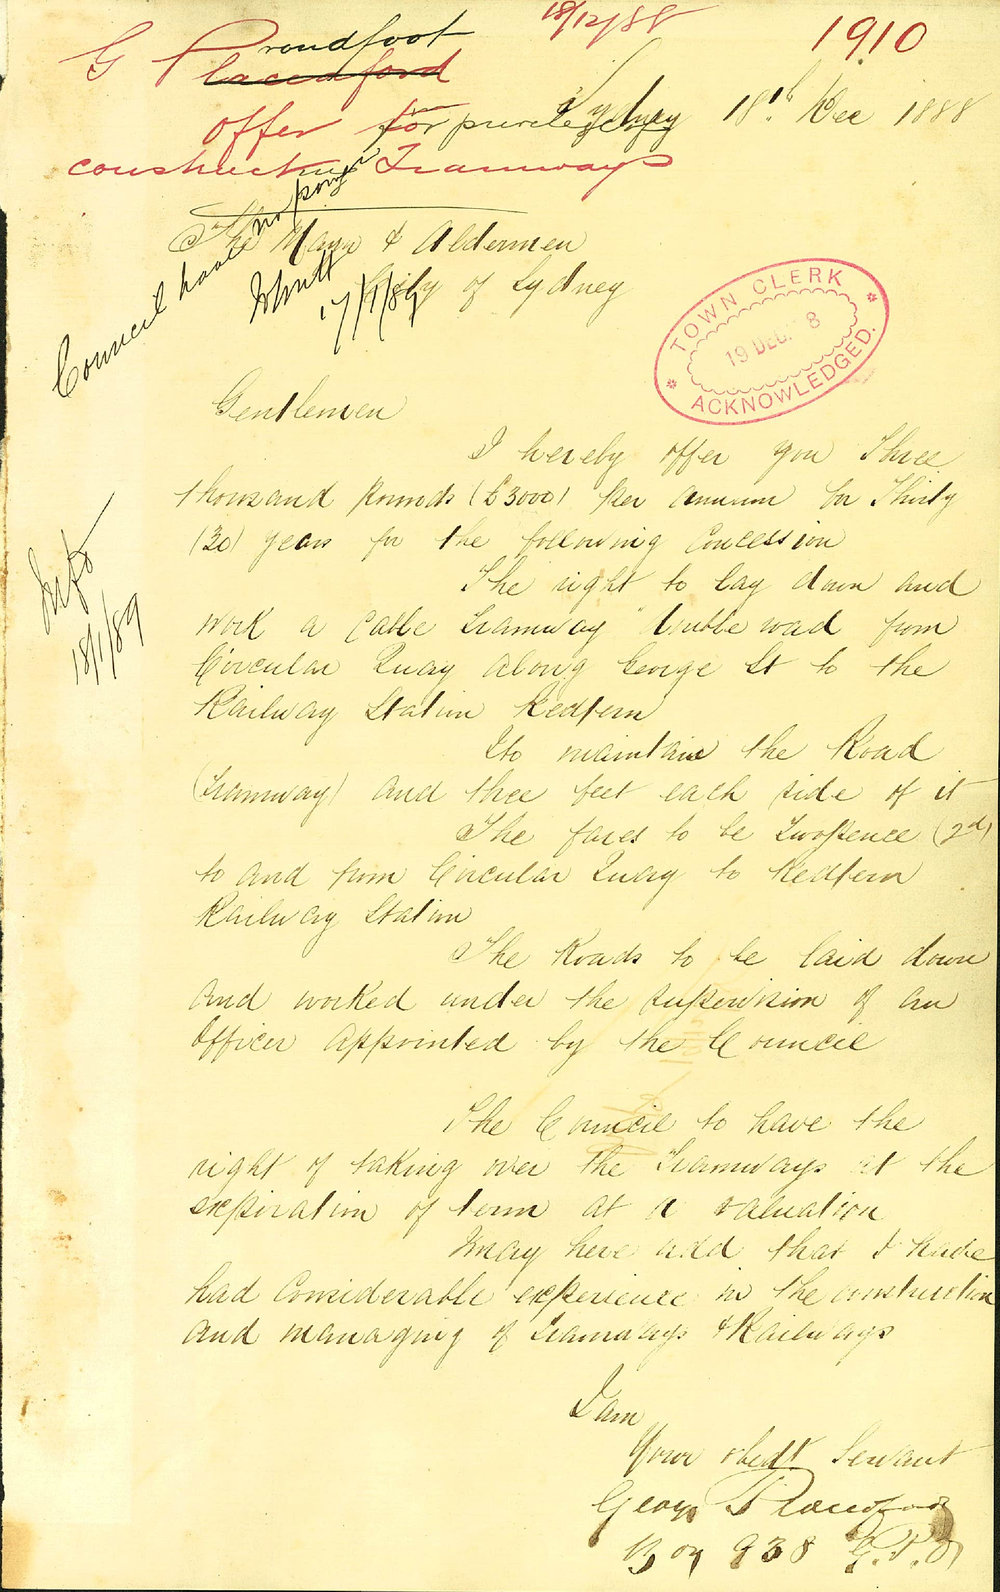 18/12/88
1910
G Proudfoot
Placenford
offer for privilege
constructing Tramways
Sydney 18th Dec 1888
The Mayor & Aldermen
City of Sydney
Council have no power
17/1/89
TOWN CLERK
19 DEC. 8
ACKNOWLEDGED.
Gentlemen
I hereby offer you Three
thousand pounds (£3000) per annum for Thirty
(30) years for the following Concession
The right to lay down and
work a Cable Tramway "double road from
Circular Quay along George St to the
Railway Station Redfern
To maintain the Road
(Tramway) and three feet each side of it
The fares to be Twopence (2d)
to and from Circular Quay to Redfern
Railway Station
The Roads to be laid down
and worked under the supervision of an
Officer appointed by the Council
18/1/89
The Council to have the
right of taking over the Tramways at the
expiration of term at a valuation
I may here add that I have
had Considerable experience in the construction
and managing of Tramways & Railways
I am
Your obedt Servant
George Proudfoot
Box 938 G.P.O